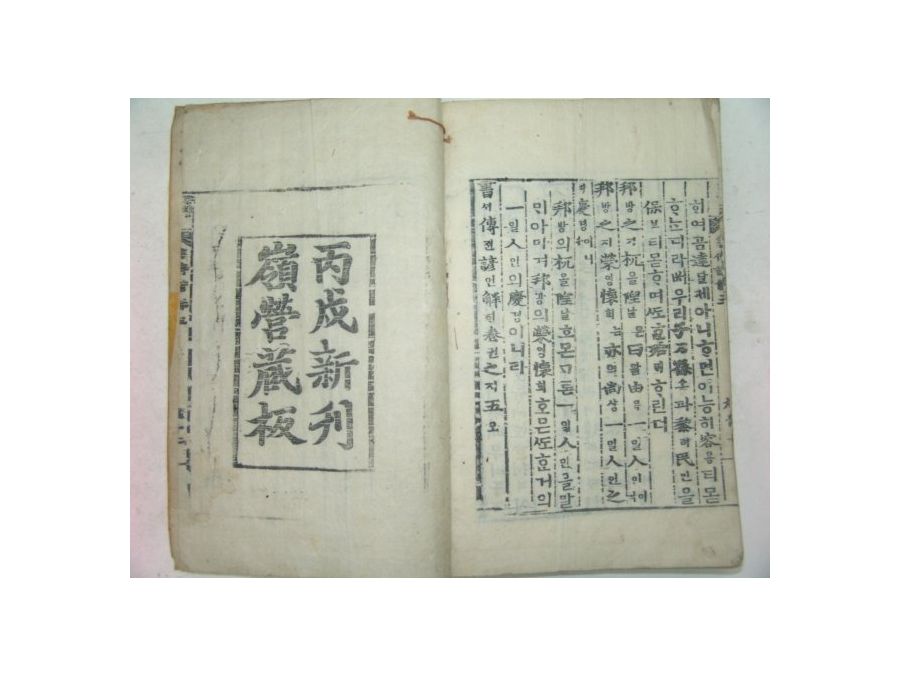 ᄒᆞ여곰達달케아니ᄒᆞ면이능히容용티몯
ᄒᆞᄂᆞᆫ디라ᄡᅥ우리子ᄌᆞ孫손과黎려民민을
保보티몯ᄒᆞ며ᄯᅩ殆ᄐᆡᄒᆞ린뎌
邦방之지杌올隉날은曰왈由유一일人인이
邦방之지榮영懷회ᄂᆞᆫ亦역尙상一일人인之지
慶경이니
邦방의杌올隉날홈一일人인을말
邦방의榮영懷회호ᄆᆞᆫᄯᅩᄒᆞᆫ거의
一일人인의慶경이니라
書셔傳젼諺언解ᄒᆡ卷권之지五오
丙戌新刊
嶺營藏板